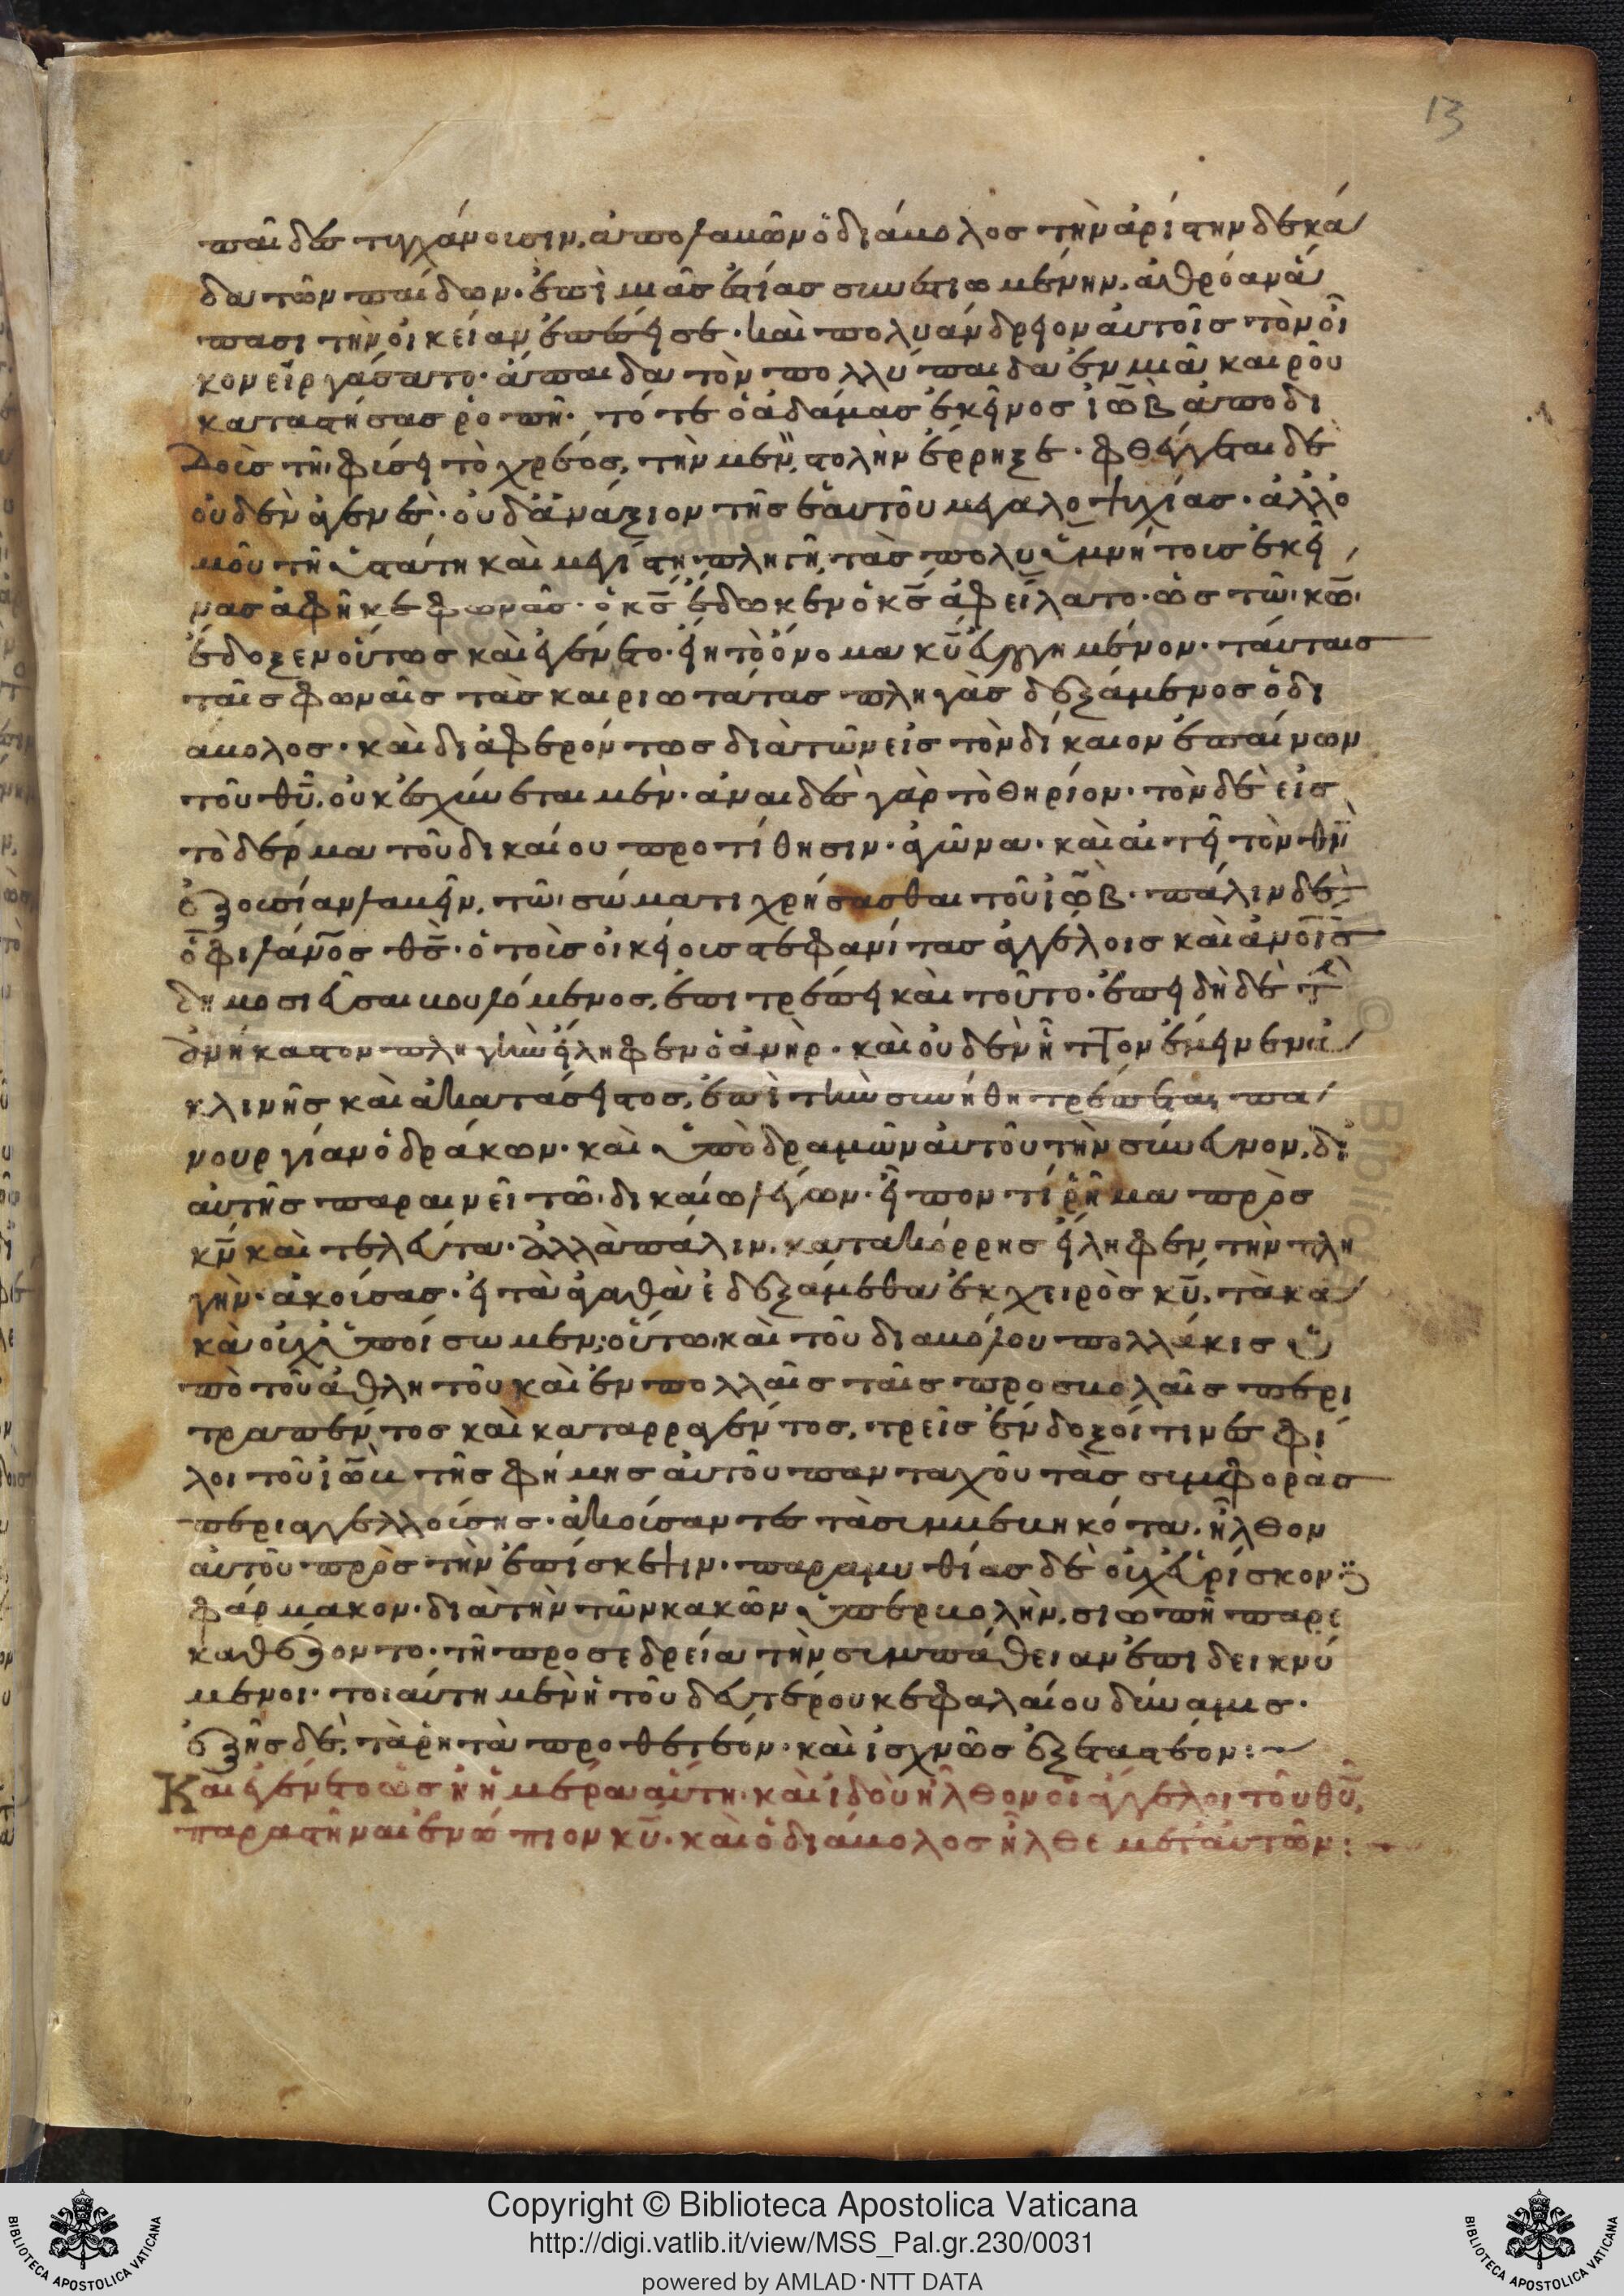 13
παῖδες τυγχάνουσιν. ἀπολαβὼν ὁ διάβολος τὴν ἀρίστην δεκά
δα τῶν παίδων. ἐπὶ μιᾶς ἑστίας συνεστιωμένην. ἀθρόαν ἅ
πασι τὴν οἰκείαν ἐπέσεισε. καὶ πολυάνδρειον αὐτοῖς τὸν οἶ
κον εἰργάσατο. ἄπαιδα τὸν πολλύπαιδα ἐν μιᾷ καιροῦ
καταστήσας ῥοπῇ. τότε ὁ ἀδάμας ἐκεῖνος ἰὼβ ἀποδι
δοὺς τῇ φύσει τὸ χρέος, τὴν μὲν στολὴν ἔρρηξε. φθέγγεται δὲ
οὐδὲν ἀγενὲς. οὐδ' ἀνάξιον τῆς ἑαυτοῦ μεγαλοψυχίας. ἀλλ' ὁ
μοῦ τῇ ὑστάτῃ καὶ μεγίστῃ πληγῇ, τὰς πολυυμνήτους ἐκεί
νας ἀφῆκε φωνὰς. ὁ κς ἔδωκεν ὁ κς ἀφείλατο. ὡς τῷ κω
ἔδοξεν οὕτως καὶ ἐγένετο. εἴη τὸ ὄνομα κυ εὐλογημένον. ταύταις
ταῖς φωναῖς τὰς καιριωτάτας πληγὰς δεξάμενος ὁ δι
άβολος. καὶ διαφερόντως διὰ τῶν εἰς τὸν δίκαιον ἐπαίνων
τοῦ θυ. οὐκ αἰσχύνεται μὲν. ἀναιδὲς γὰρ τὸ θηρίον. τὸν δὲ εἰς
τὸ δέρμα τοῦ δικαίου προτίθησιν ἀγῶνα. καὶ αἰτεῖ τὸν θν
ἐξουσίαν λαβεῖν, τῷ σώματι χρήσασθαι τοῦ ἰὼβ. πάλιν δὲ
ὁ φιλανος θς. ὁ τοὺς οἰκείους στεφανίτας ἀγγέλοις καὶ ανοις
δημοσιεῦσαι βουλόμενος, ἐπιτρέπει καὶ τοῦτο. ἐπειδὴ δὲ τὴν
ἑνδηκατον πληγὴν εἴληφεν ὁ ἀνὴρ. καὶ οὐδὲν ἧττον ἔμεινεν ἀ
κλινὴς καὶ ἀκατάσειστος, ἐπὶ τὴν συνήθη τρέπεται πα
νουργίαν ὁ δράκων. καὶ ὑποδραμὼν αὐτοῦ τὴν σύνευνον, δι'
αὐτῆς παραινεῖ τῷ δικαίῳ λέγων. εἶπον τί ῥῆμα πρὸς
κν καὶ τελεύτα. ἀλλὰ πάλιν, κατακόρρης εἴληφεν τὴν πλη
γὴν. ἀκούσας. εἰ τὰ ἀγαθὰ ἐδεξάμεθα ἐκ χειρὸς κυ, τὰ κα
κὰ οὐχ ὑποίσωμεν; οὕτω καὶ τοῦ διαβόλου πολλάκις ὑ
πὸ τοῦ ἀθλητοῦ καὶ ἐν πολλαῖς ταῖς προσβολαῖς περι
τραπέντος καὶ καταρραγέντος, τρεῖς ἔνδοξοί τινες φί
λοι τοῦ ἰὼβ τῆς φήμης αὐτοῦ πανταχοῦ τὰς συμφορὰς
περιαγγελλούσης. ἀκούσαντες τὰ συμβεβηκότα. ἦλθον
αὐτοῦ πρὸς τὴν ἐπίσκεψιν. παραμυθίας δὲ οὐχ εὑρίσκον
φάρμακον. διὰ τὴν τῶν κακῶν ὑπερβολὴν. σιωπῇ παρε
καθέζοντο. τῇ προσεδρείᾳ τὴν συμπάθειαν ἐπιδεικνύ
μενοι. τοιαύτη μὲν ἡ τοῦ δευτέρου κεφαλαίου δύναμις.
ἑξῆς δὲ, τὰ ῥητὰ προθετέον. καὶ ἰσχνῶς ἐξεταστέον:
Καὶ ἐγένετο ὡς ἡ ἡμέρα αὕτη. καὶ ἰδοὺ ἦλθον οἱ ἄγγελοι τοῦ θυ,
παραστῆναι ἐνώπιον κυ. καὶ ὁ διάβολος ἦλθε μετ' αὐτῶν:
Copyright © Biblioteca Apostolica Vaticana
http://digi.vatlib.it/view/MSS_Pal.gr.230/0031
powered by AMLAD·NTT DATA
BIBLIOTECA APOSTOLICA VATICANA
BIBLIOTECA APOSTOLICA VATICANA